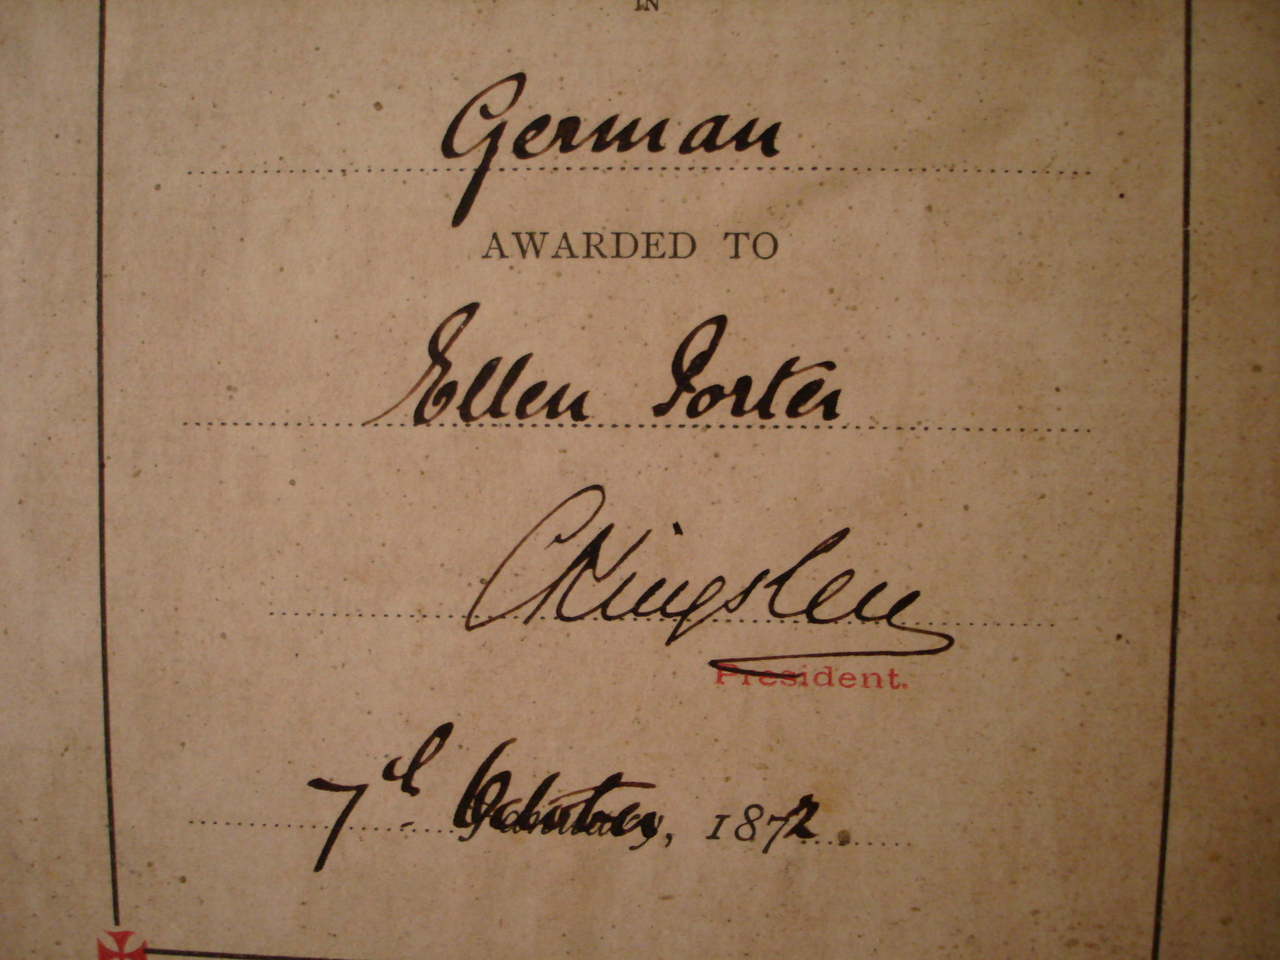 IN
German
AWARDED TO
Ellen Porter
CKingsley
President.
7th October, 1872